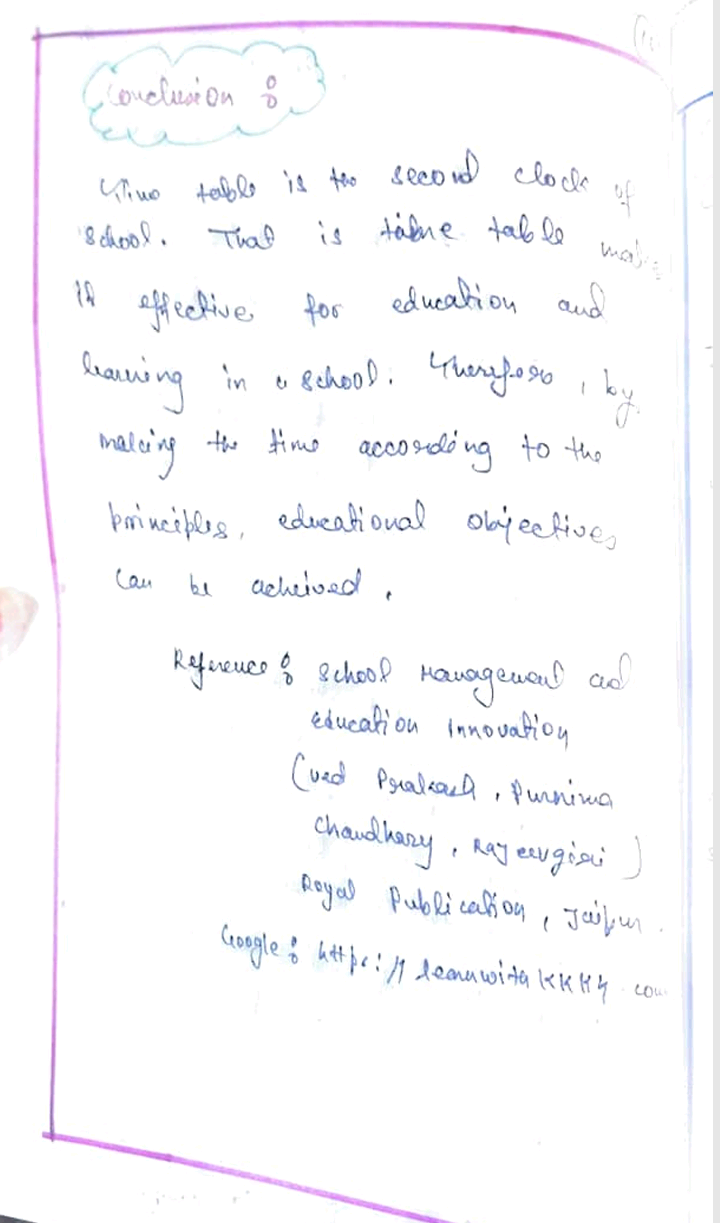 Conclusion :
Time table is the second clock of
school. That is time table make
it effective for education and
learning in a school. Therefore, by
making the time according to the
principles, educational objectives
can be acheived.
Reference : School Management and
Education Innovation
(Ved Prakash, Purnima
Chaudhary, Rajeevgiri)
Royal Publication, Jaipur.
Google : https://learnwith